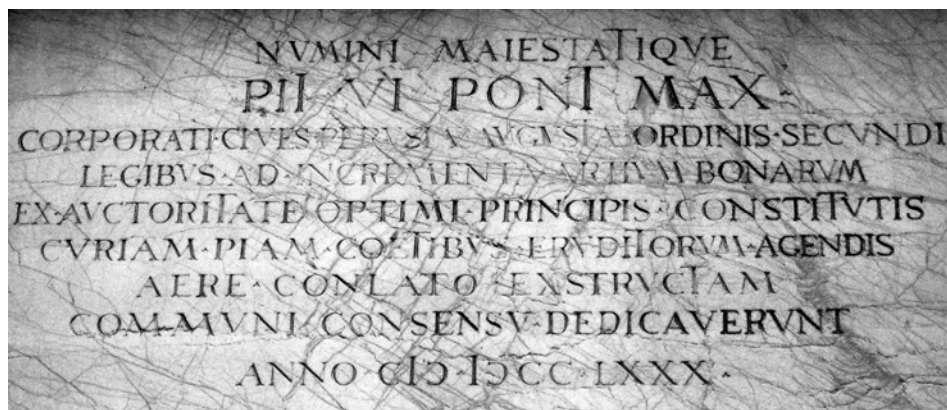 NVMINI MAIESTATIQVE
PII VI PONT MAX·
CORPORATI·CIVES·PERVSIAE AVGVSTAE ORDINIS·SECVNDI
LEGIBVS·AD·INCREMENTA ARTIVM BONARVM
EX·AVCTORITATE OPTIMI·PRINCIPIS·CONSTITVTIS
CVRIAM·PIAM·COETIBVS·ERVDITORVM·AGENDIS
AERE·CONLATO EXSTRVCTAM
COMMVNI CONSENSV·DEDICAVERVNT
ANNO·CIↃ·IↃCC·LXXX·